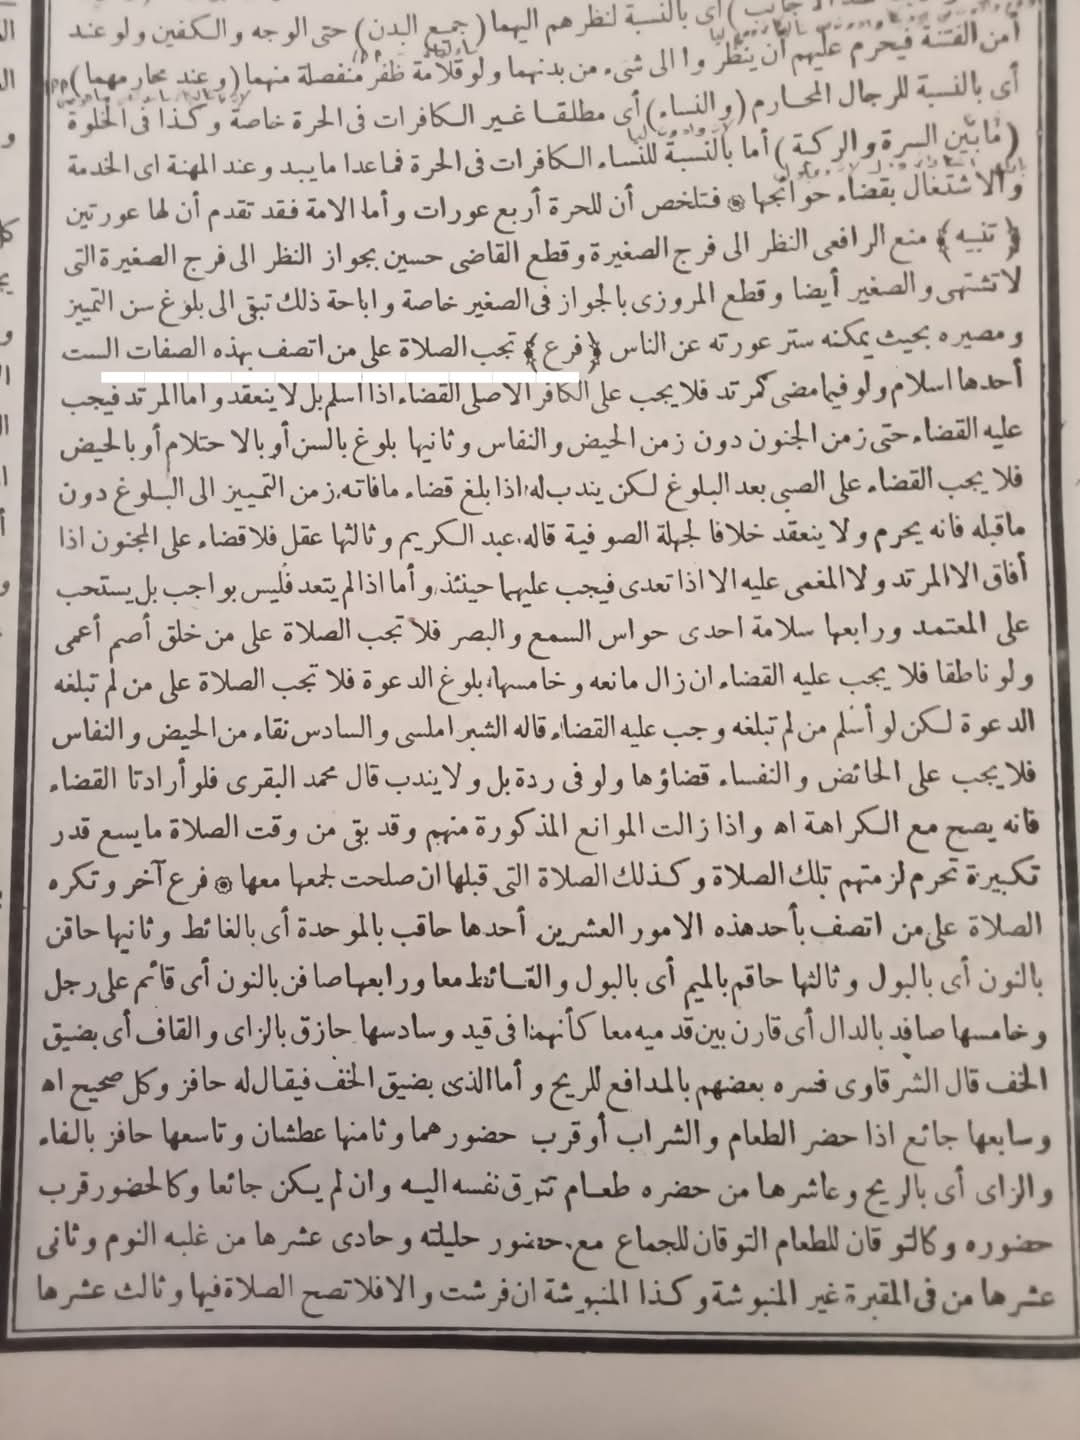 أى بالنسبة لنظرهم اليهما (جميع البدن) حتى الوجه والكفين ولو عند
أمن الفتنة فيحرم عليهم أن ينظروا الى شىء من بدنهما ولو قلامة ظفر منفصلة منهما (وعند محارمهما)
أى بالنسبة للرجال المحارم (والنساء) أى مطلقا غير الكافرات فى الحرة خاصة وكذا فى الخلوة
(ما بين السرة والركبة) أما بالنسبة للنساء الكافرات فى الحرة فماعدا ما يبد وعند المهنة اى الخدمة
والاشتغال بقضاء حوائجها ۞ فتلخص أن للحرة أربع عورات وأما الامة فقد تقدم أن لها عورتين
﴿ تنبيه ﴾ منع الرافعى النظر الى فرج الصغيرة وقطع القاضى حسين بجواز النظر الى فرج الصغيرة التى
لا تشتهى والصغير أيضا وقطع المروزى بالجواز فى الصغير خاصة واباحة ذلك تبقى الى بلوغ سن التمييز
ومصيره بحيث يمكنه ستر عورته عن الناس ﴿ فرع ﴾ تجب الصلاة على من اتصف بهذه الصفات الست
أحدها اسلام ولو فيما مضى كمرتد فلا يجب على الكافر الاصلى القضاء اذا أسلم بل لا ينعقد وأما المرتد فيجب
عليه القضاء حتى زمن الجنون دون زمن الحيض والنفاس وثانيها بلوغ بالسن أو بالاحتلام أو بالحيض
فلا يجب القضاء على الصبى بعد البلوغ لكن يندب له اذا بلغ قضاء ما فاته زمن التمييز الى البلوغ دون
ما قبله فانه يحرم ولا ينعقد خلافا لجهلة الصوفية قاله عبد الكريم وثالثها عقل فلا قضاء على المجنون اذا
أفاق الا المرتد ولا المغمى عليه الا اذا تعدى فيجب عليهما حينئذ وأما اذا لم يتعد فليس بواجب بل يستحب
على المعتمد ورابعها سلامة احدى حواس السمع والبصر فلا تجب الصلاة على من خلق أصم أعمى
ولو ناطقا فلا يجب عليه القضاء ان زال مانعه وخامسها بلوغ الدعوة فلا تجب الصلاة على من لم تبلغه
الدعوة لكن لو أسلم من لم تبلغه وجب عليه القضاء قاله الشبراملسى والسادس نقاء من الحيض والنفاس
فلا يجب على الحائض والنفساء قضاؤها ولو فى ردة بل ولا يندب قال محمد البقرى فلو أرادتا القضاء
فانه يصح مع الكراهة اه واذا زالت الموانع المذكورة منهم وقد بقى من وقت الصلاة ما يسع قدر
تكبيرة تحرم لزمتهم تلك الصلاة وكذلك الصلاة التى قبلها ان صلحت لجمعها معها ۞ فرع آخر وتكره
الصلاة على من اتصف بأحد هذه الامور العشرين أحدها حاقب بالموحدة أى بالغائط وثانيها حاقن
بالنون أى بالبول وثالثها حاقم بالميم أى بالبول والغائط معا ورابعها صافن بالنون أى قائم على رجل
وخامسها صافد بالدال أى قارن بين قدميه معا كأنهما فى قيد وسادسها حازق بالزاى والقاف أى بضيق
الخف قال الشرقاوى فسره بعضهم بالمدافع للريح وأما الذى بضيق الخف فيقال له حافز وكل صحيح اه
وسابعها جائع اذا حضر الطعام والشراب أو قرب حضورهما وثامنها عطشان وتاسعها حافز بالفاء
والزاى أى بالريح وعاشرها من حضره طعام تتوق نفسه اليه وان لم يكن جائعا وكالحضور قرب
حضوره وكالتوقان للطعام التوقان للجماع مع حضور حليلته وحادى عشرها من غلبه النوم وثانى
عشرها من فى المقبرة غير المنبوشة وكذا المنبوشة ان فرشت والا فلا تصح الصلاة فيها وثالث عشرها